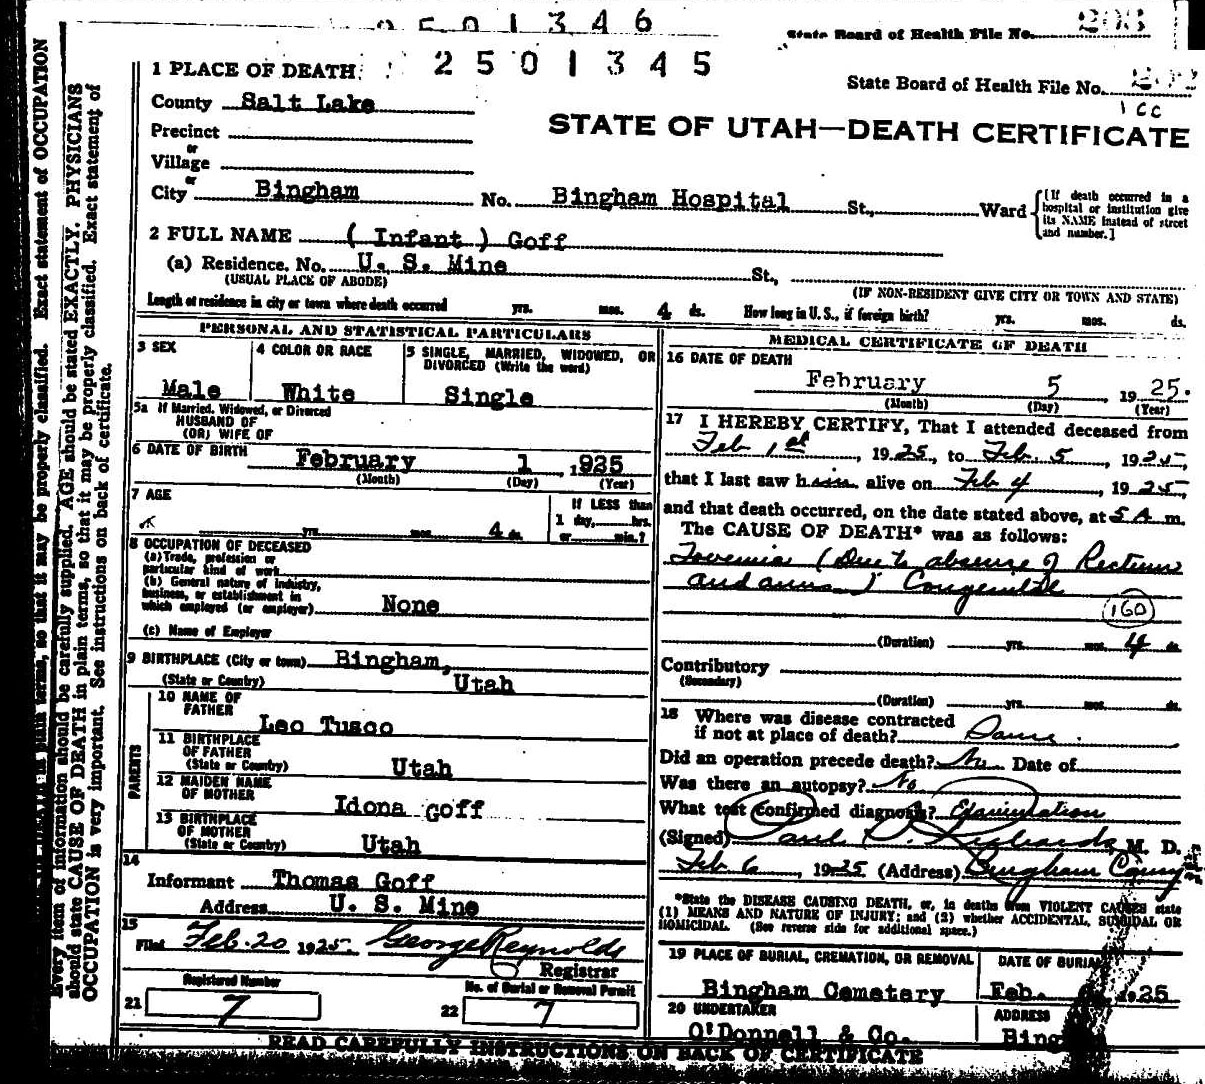 5 0 1 3 4 6
State Board of Health File No.
2 5 0 1 3 4 5
State Board of Health File No.
1 PLACE OF DEATH
County Salt Lake
STATE OF UTAH—DEATH CERTIFICATE
Precinct
or
Village
or
City Bingham No. Bingham Hospital St., Ward
[If death occurred in a
hospital or institution give
its NAME instead of street
and number.]
2 FULL NAME ( Infant ) Goff
(a) Residence. No. U. S. Mine St.,
(USUAL PLACE OF ABODE) (IF NON-RESIDENT GIVE CITY OR TOWN AND STATE)
Length of residence in city or town where death occurred yrs. mos. 4 ds. How long in U. S., if foreign birth? yrs. mos. ds.
PERSONAL AND STATISTICAL PARTICULARS
3 SEX
Male
4 COLOR OR RACE
White
5 SINGLE, MARRIED, WIDOWED, OR
DIVORCED (Write the word)
Single
5a If Married, Widowed, or Divorced
HUSBAND OF
(OR) WIFE OF
6 DATE OF BIRTH February 1 , 1925
(Month) (Day) (Year)
7 AGE
yrs. mos. 4 ds.
If LESS than
1 day, hrs.
or min.?
8 OCCUPATION OF DECEASED
(a) Trade, profession or
particular kind of work
(b) General nature of industry,
business, or establishment in
which employed (or employer) None
(c) Name of Employer
9 BIRTHPLACE (City or town) Bingham,
(State or Country) Utah
PARENTS
10 NAME OF
FATHER
Leo Tusco
11 BIRTHPLACE
OF FATHER
(State or Country) Utah
12 MAIDEN NAME
OF MOTHER
Idona Goff
13 BIRTHPLACE
OF MOTHER
(State or Country) Utah
14
Informant Thomas Goff
Address U. S. Mine
15
Filed Feb. 20 1925 George Reynolds
Registrar
Registered Number
21 7
No. of Burial or Removal Permit
22 7
MEDICAL CERTIFICATE OF DEATH
16 DATE OF DEATH
February 5 , 19 25.
(Month) (Day) (Year)
17 I HEREBY CERTIFY, That I attended deceased from
Feb 1st , 1925, to Feb. 5 , 1925,
that I last saw him alive on Feb 4 , 1925,
and that death occurred, on the date stated above, at 5 A m.
The CAUSE OF DEATH* was as follows:
(Due to absence of Rectum
and anus ) Congenital
160
(Duration) yrs. mos. 4 ds.
Contributory
(Secondary)
(Duration) yrs. mos. ds.
18 Where was disease contracted
if not at place of death? Same.
Did an operation precede death? No Date of
Was there an autopsy? No
What test confirmed diagnosis? Examination
(Signed) Paul S. Richards, M. D.
Feb 6 , 1925 (Address) Bingham Cany
*State the DISEASE CAUSING DEATH, or, in deaths from VIOLENT CAUSES state
(1) MEANS AND NATURE OF INJURY; and (2) whether ACCIDENTAL, SUICIDAL OR
HOMICIDAL. (See reverse side for additional space.)
19 PLACE OF BURIAL, CREMATION, OR REMOVAL
Bingham Cemetery
DATE OF BURIAL
Feb. 1925
20 UNDERTAKER
O'Donnell & Co.
ADDRESS
Bing
READ CAREFULLY INSTRUCTIONS ON BACK OF CERTIFICATE
Every item of information should be carefully supplied. AGE should be stated EXACTLY. PHYSICIANS
should state CAUSE OF DEATH in plain terms, so that it may be properly classified. Exact statement of
OCCUPATION is very important. See instructions on back of certificate.
plain terms, so that it may be properly classified. Exact statement of OCCUPATION